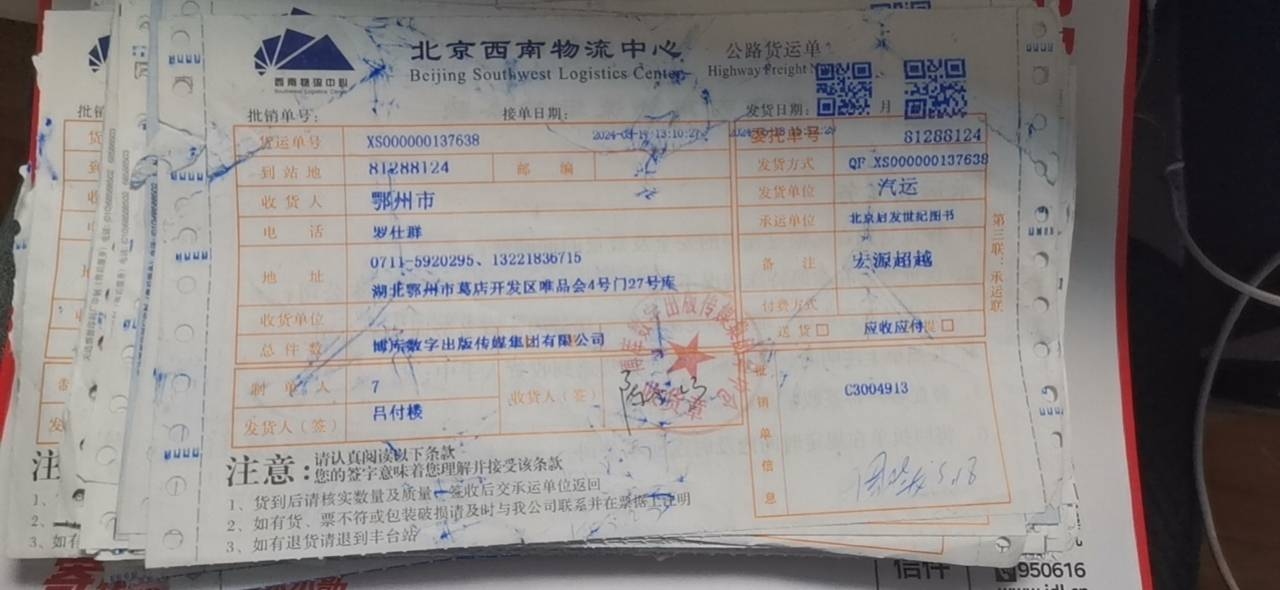 西南物流中心
Southwest Logistics Center
北京西南物流中心
Beijing Southwest Logistics Center
公路货运单
Highway Freight
批销单号：
接单日期：
发货日期： 月
货运单号 XS000000137638
委托单号 81288124
到站地 81288124 邮 编
发货方式 QF XS000000137638
收货人 鄂州市
发货单位 汽运
电 话 罗仕群
承运单位 北京启发世纪图书
地 址 0711-5920295、13221836715
湖北鄂州市葛店开发区唯品会4号门27号库
备 注 宏源超越
收货单位
付款方式
总件数 博库数字出版传媒集团有限公司
送 货 □ 应收应付 提 □
制单人 7
收货人（签）
发货人（签） 吕付楼
批销单信息
C3004913
第三联：承运联
注意：
请认真阅读以下条款
您的签字意味着您理解并接受该条款
1、货到后请核实数量及质量 签收后交承运单位返回
2、如有货、票不符或包装破损请及时与我公司联系并在票据上注明
3、如有退货请退到丰台站
注
1、
2、
3、如有
信件
950616